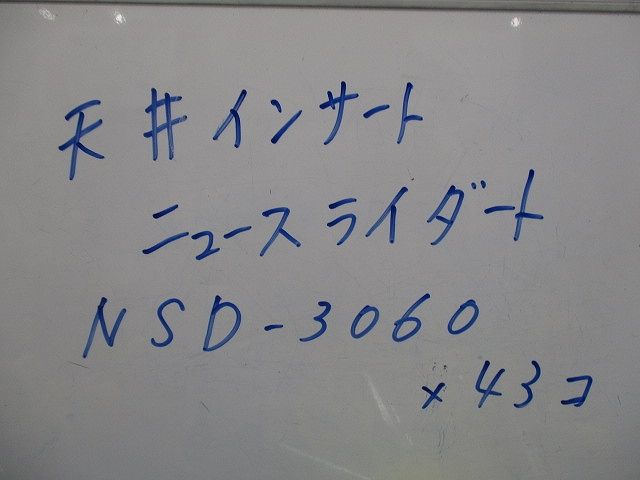 天井インサート
ニュースライダート
NSD-3060
×43コ